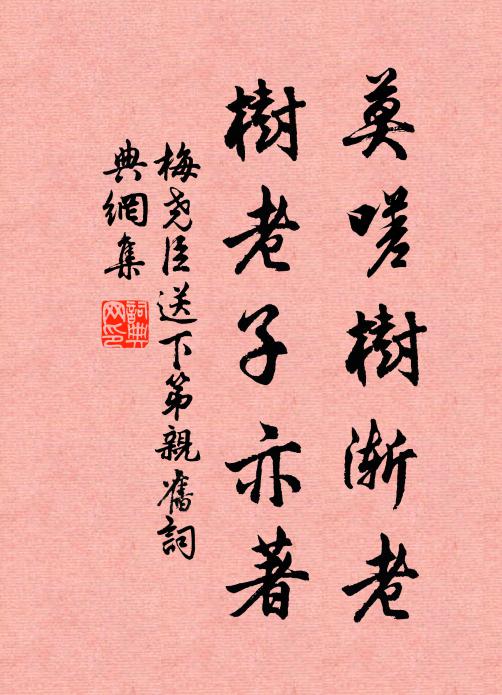 莫嗟樹漸老
樹老子亦著
梅堯臣送下第親舊詞
典網集
詞典網印